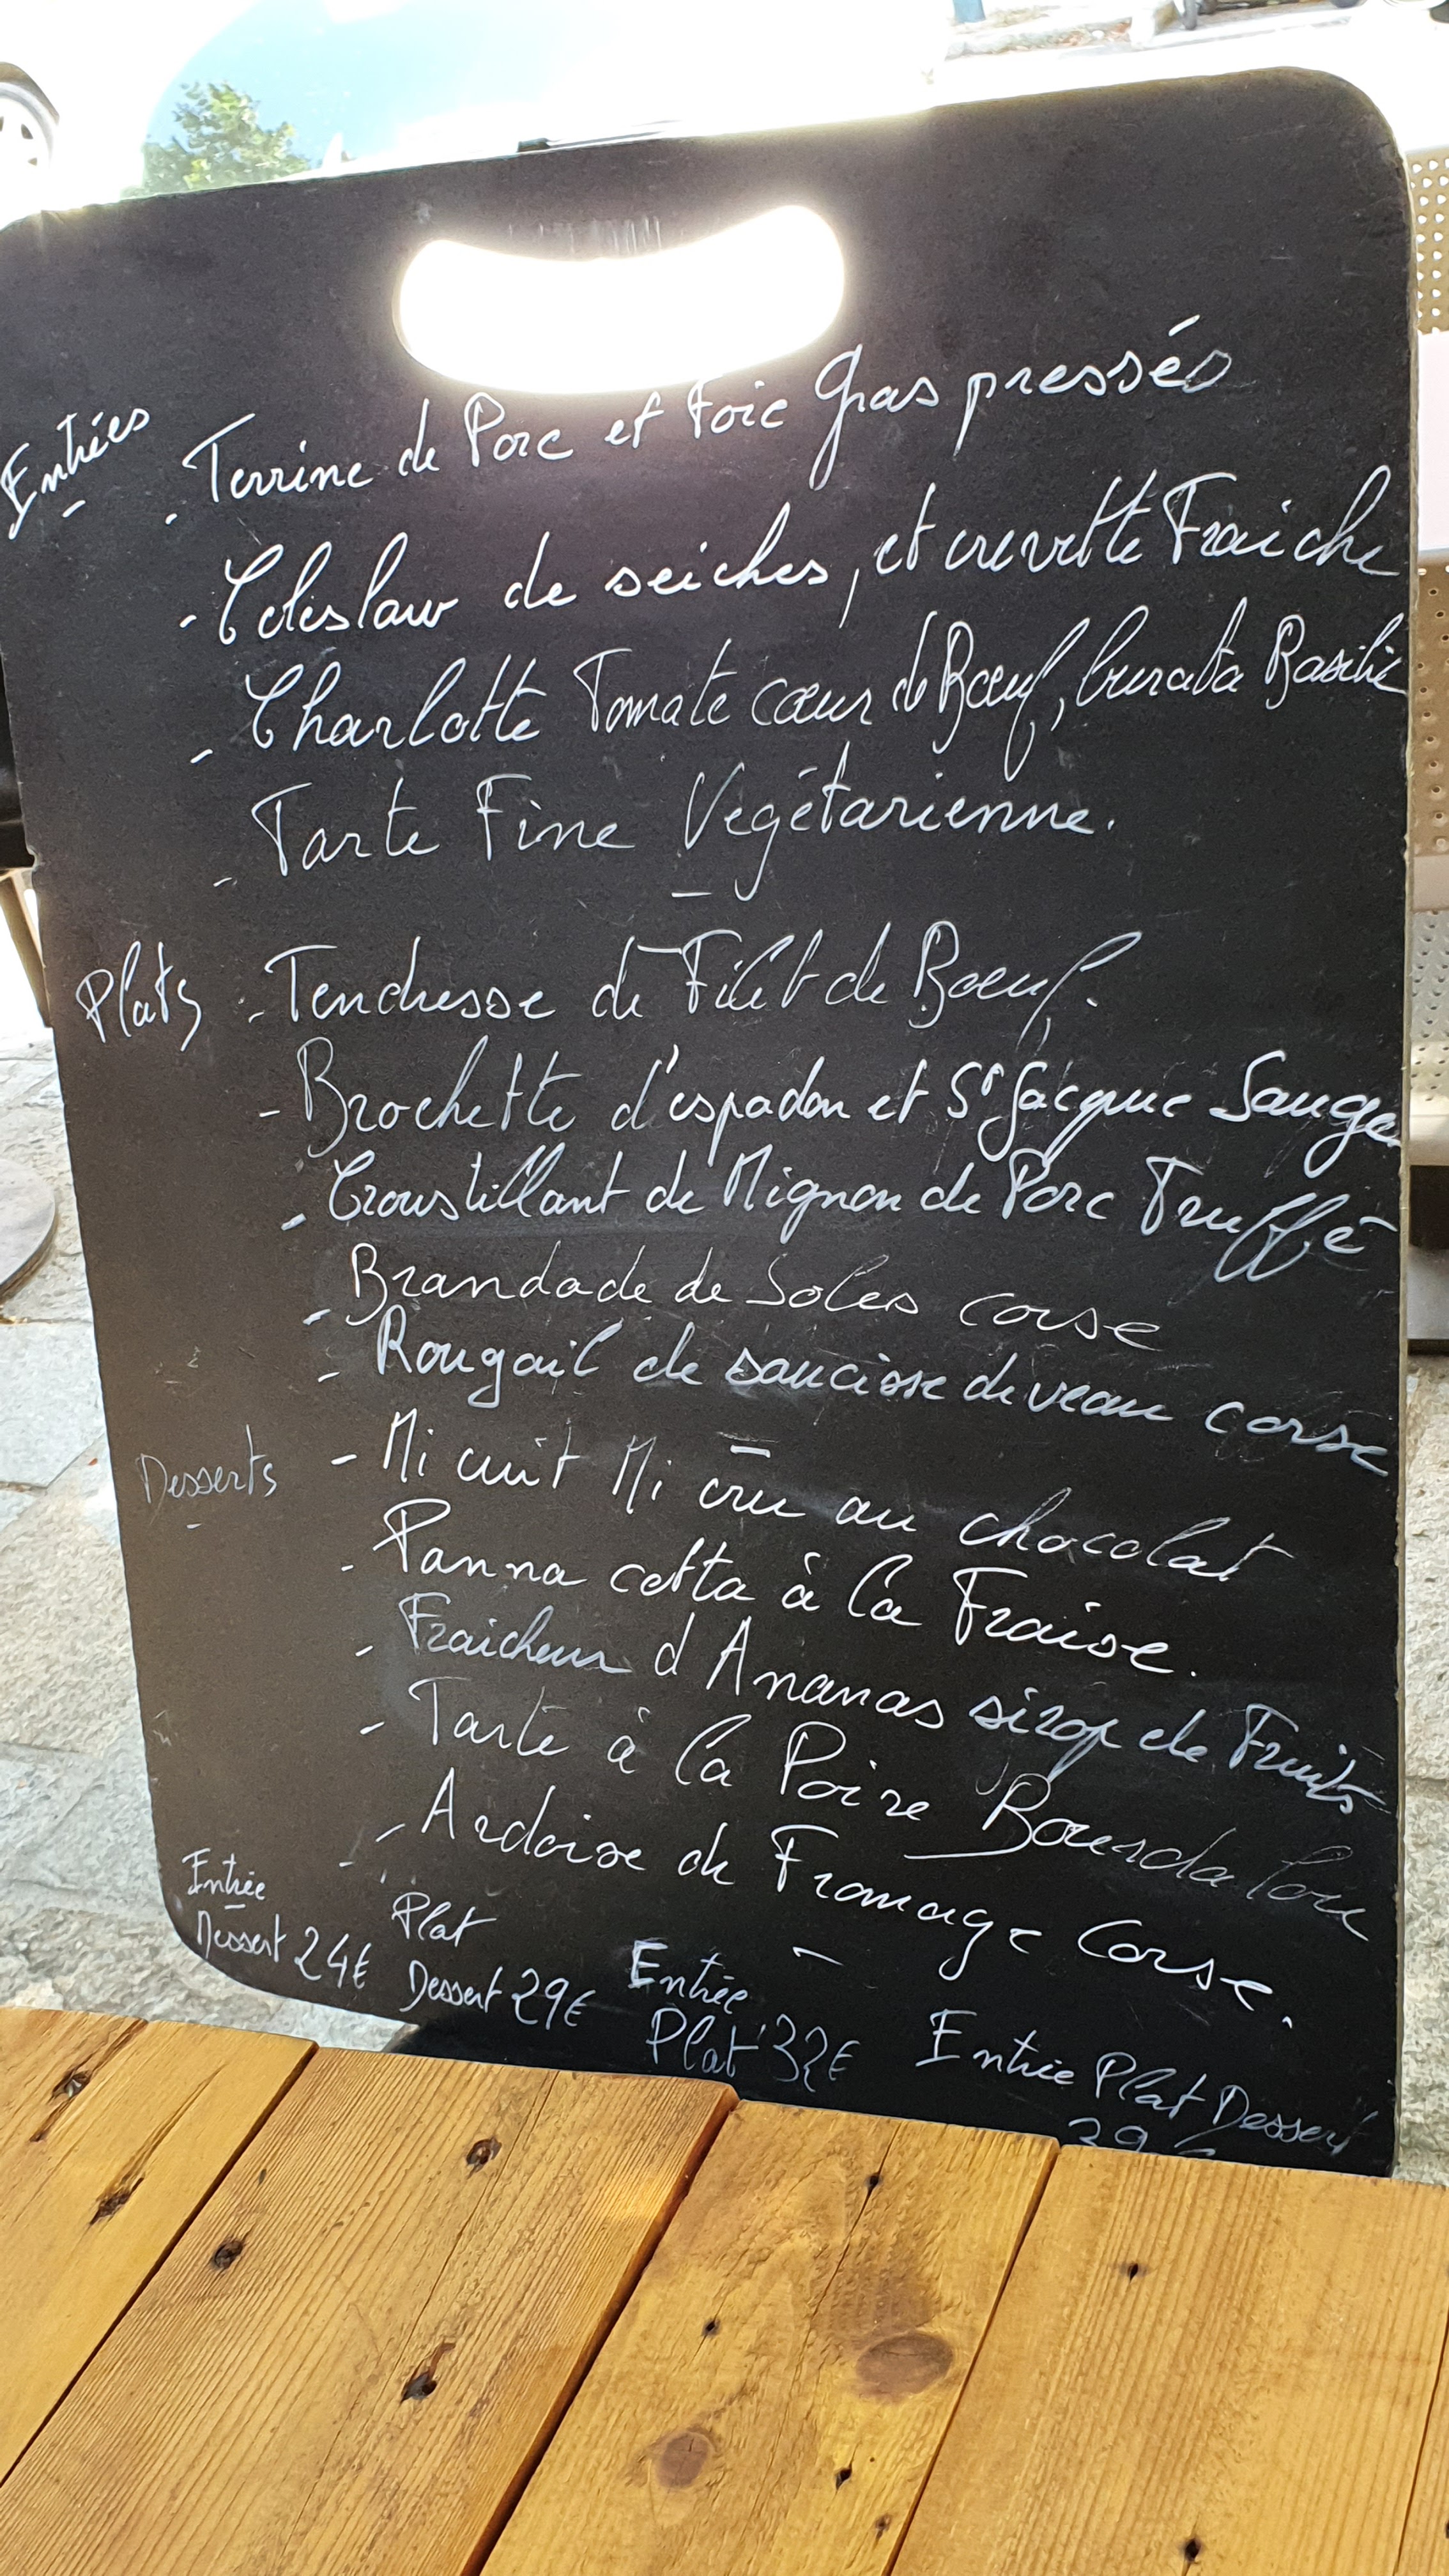 Entrées - Terrine de Porc et Foie Gras pressés
- Coleslaw de seiches, et crevette Fraiche
- Charlotte Tomate cœur de Bœuf, burata Basilic
- Tarte Fine Végétarienne.
Plats - Tendresse de Filet de Bœuf.
- Brochette d'espadon et St Jacque Sauge
- Croustillant de Mignon de Porc Truffé
- Brandade de Soles corse
- Rougail de saucisse de veau corse
Desserts - Mi cuit Mi cru au chocolat
- Panna cotta à la Fraise.
- Fraicheur d Ananas sirop de Fruits
- Tarte à la Poire Bourdalou
- Ardoise de Fromage Corse.
Entrée
Dessert 24€
Plat
Dessert 29€
Entrée
Plat 32€
Entrée Plat Dessert
39€